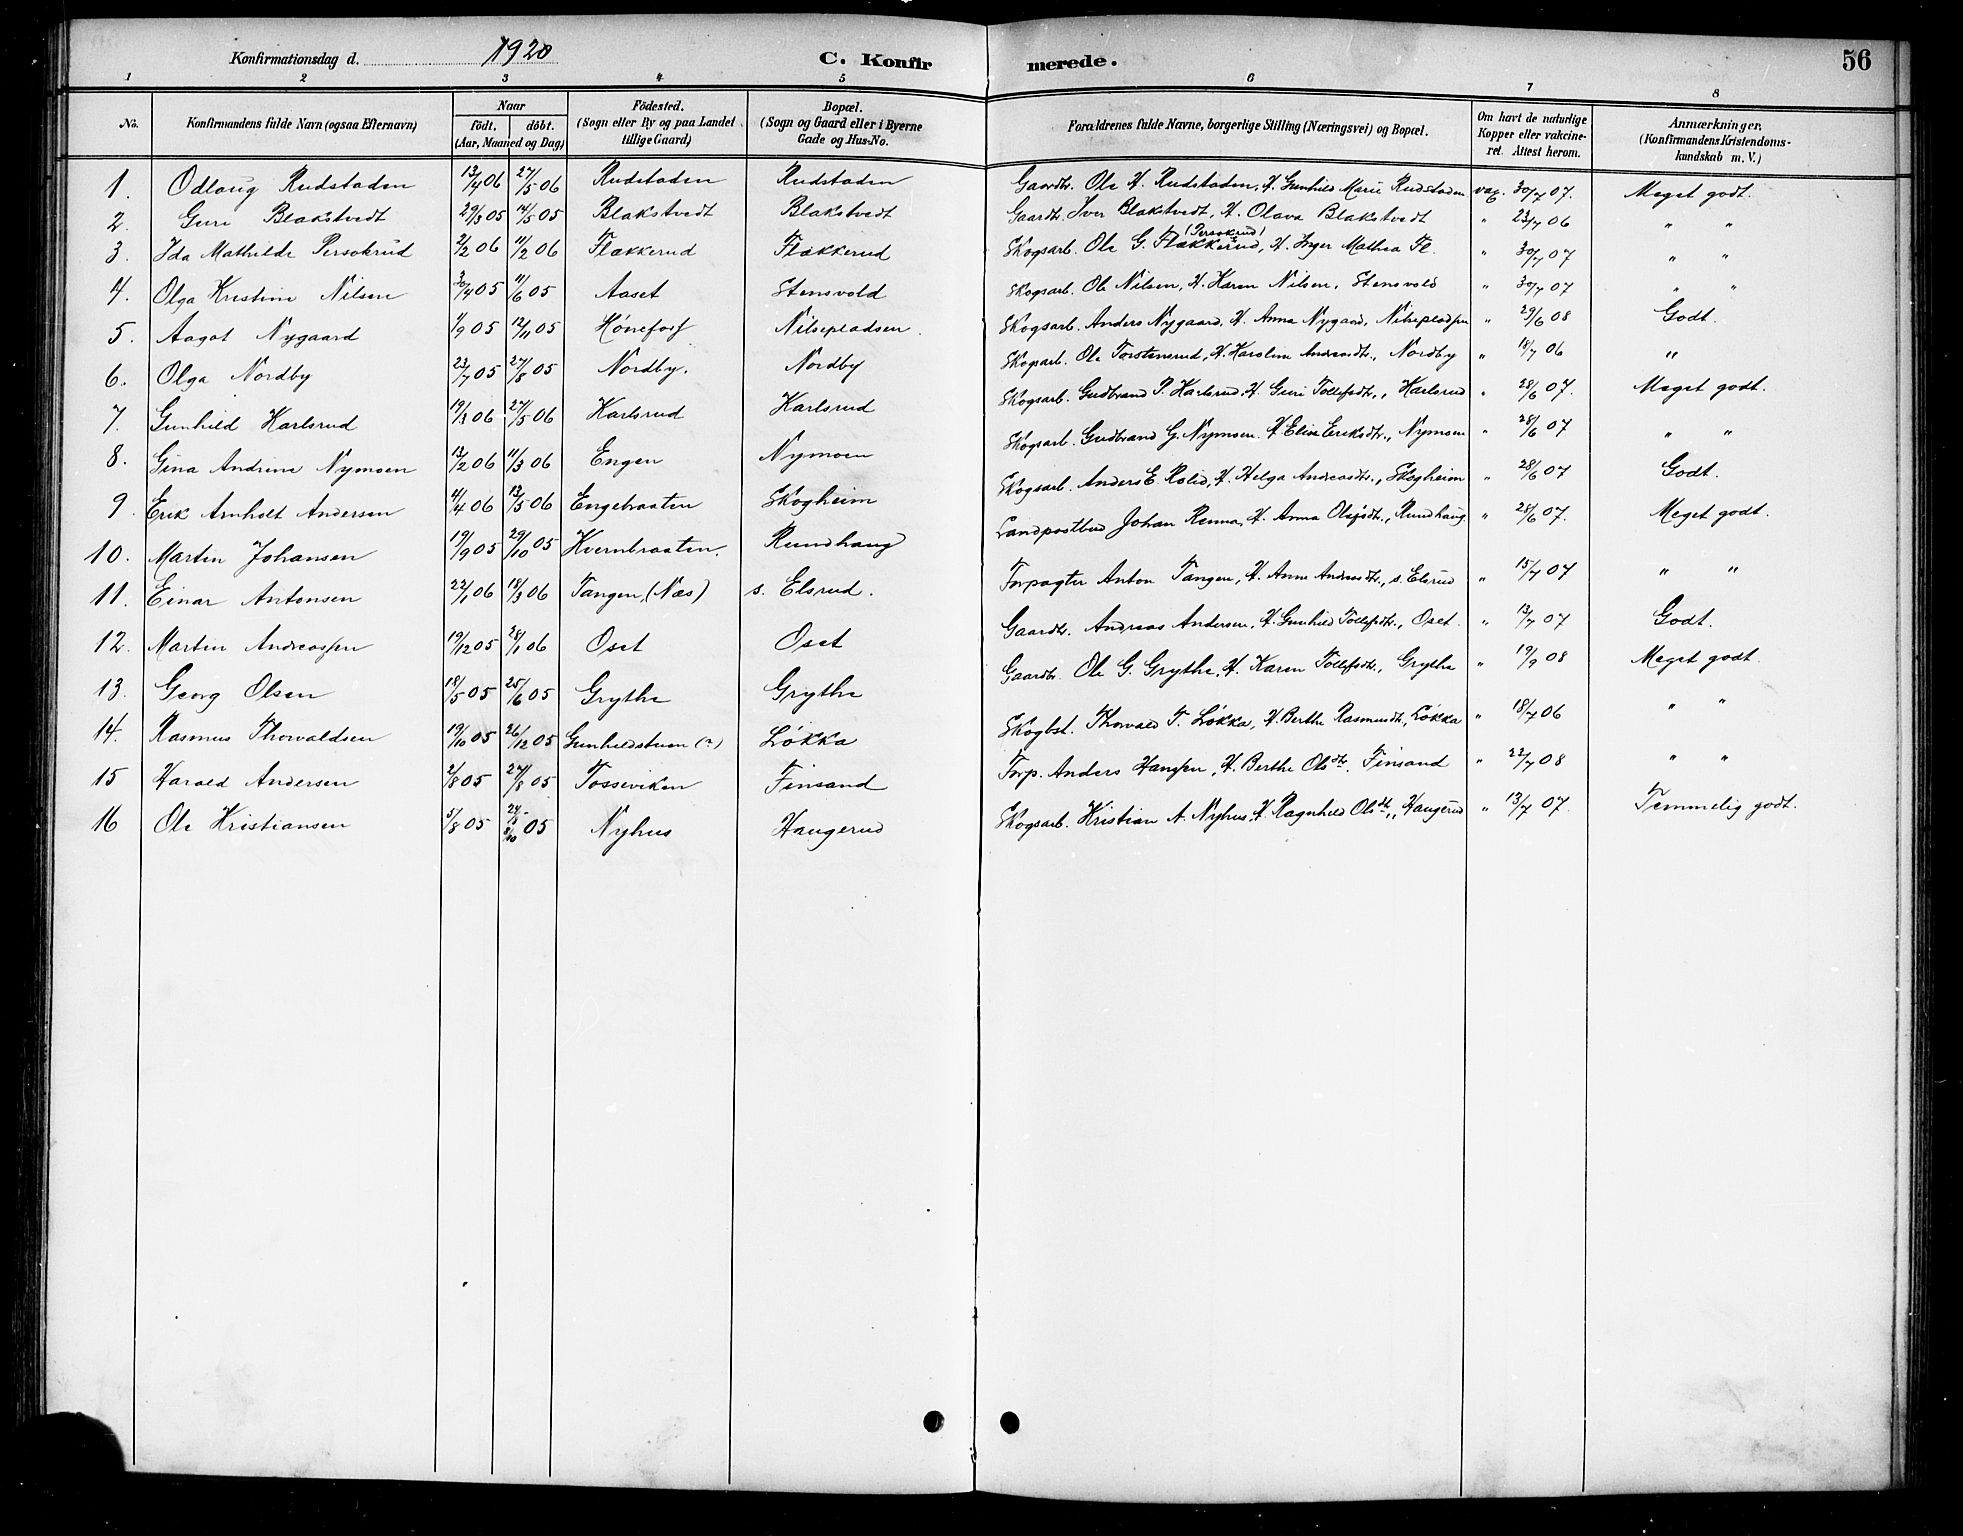 Konfirmationsdag d. 1920 C. Konfir merede. 56
1 2 3 4 5 6 7 8
No. Konfirmandens fulde Navn (ogsaa Efternavn) Naar födt. döbt. (Aar, Maaned og Dag) Födested. (Sogn eller By og paa Landet tillige Gaard) Bopæl. (Sogn og Gaard eller i Byerne Gade og Hus-No. Forældrenes fulde Navne, borgerlige Stilling (Næringsvei) og Bopæl. Om havt de naturlige Kopper eller vakcineret. Attest herom. Anmærkninger. (Konfirmandens Kristendomskundskab m. V.)
1. Odlaug Rudstaden 13/4 06 27/5 06 Rudstaden Rudstaden Gaardb. Ole H. Rudstaden, H. Gunhild Marie Rudstaden vax. 30/7 07. Meget godt.
2. Guri Blakstvedt 29/3 05 14/5 05 Blakstvedt Blakstvedt Gaardb. Iver Blakstvedt, H. Olava Blakstvedt " 23/7 06 " "
3. Ida Mathilde Persokrud 2/2 06 11/2 06 Flækkerud Flækkerud Skogsarb. Ole G. Flækkerud (Persokrud), H. Inger Mathea Fl. " 30/7 07 " "
4. Olga Kristine Nilsen 30/4 05 11/6 05 Aaset Stensvold Skogsarb. Ole Nilsen, H. Karen Nilsen, Stensvold " 30/7 07 " "
5. Aagot Nygaard 1/9 05 12/11 05 Hønefoss Nilsepladsen. Skogsarb. Anders Nygaard, H. Anna Nygaard, Nilsepladsen " 29/6 08 Godt.
6. Olga Nordby 23/7 05 27/8 05 Nordby. Nordby Skogsarb. Ole Torstenrud, H. Karoline Andreasdtr., Nordby " 18/7 06 "
7. Gunhild Karlsrud 19/3 06 27/5 06 Karlsrud Karlsrud Skogsarb. Gudbrand P. Karlsrud, H. Guri Tollefsdtr., Karlsrud " 28/6 07. Meget godt.
8. Gina Andrine Nymoen 13/2 06 11/3 06 Engen Nymoen Skogsarb. Gudbrand G. Nymoen. H. Elise Eriksdtr., Nymoen " 28/6 07 " "
9. Erik Arnholt Andersen 4/4 06 13/5 06 Engebraaten Skogheim Skogsarb. Anders E. Rolid, H. Helga Andreasdtr., Skogheim " 28/6 07 Godt.
10. Martin Johansen 19/9 05 29/10 05 Kvernbraaten. Rundhaug Landpostbud Johan Renna, H. Anna Olsdtr., Rundhaug " 28/6 07. Meget godt.
11. Einar Antonsen 22/1 06 18/3 06 Tangen, (Næs) s. Elsrud. Forpagter Anton Tangen, H. Anne Andreasdtr., s. Elsrud " 15/7 07 " "
12. Martin Andreassen 19/12 05 28/1 06 Oset Oset Gaardb. Andreas Andersen, H. Gunhild Tollefsdtr., Oset. " 13/7 07 Godt.
13. Georg Olsen 18/5 05 25/6 05 Grythe Grythe Gaardb. Ole G. Grythe, H. Karen Tollefsdtr., Grythe " 19/9 08 Meget godt.
14. Rasmus Thorvaldsen 19/10 05 26/12 05 Gunhildstuen (?) Løkka Skogbst. Thorvald T. Løkka, H. Berthe Rasmusdt., Løkka " 18/7 06 " "
15 Harald Andersen 2/8 05 27/8 05 Tosseviken Finsand Forp. Anders Hansen, H. Berthe Olsdtr. Finsand " 22/7 08 " "
16 Ole Kristiansen 5/8 05 24/5 8/10 05 Nyhus Haugerud Skogsarb. Kristian A. Nyhus, H. Ragnhild Olsdt., Haugerud " 13/7 07. Temmelig godt.